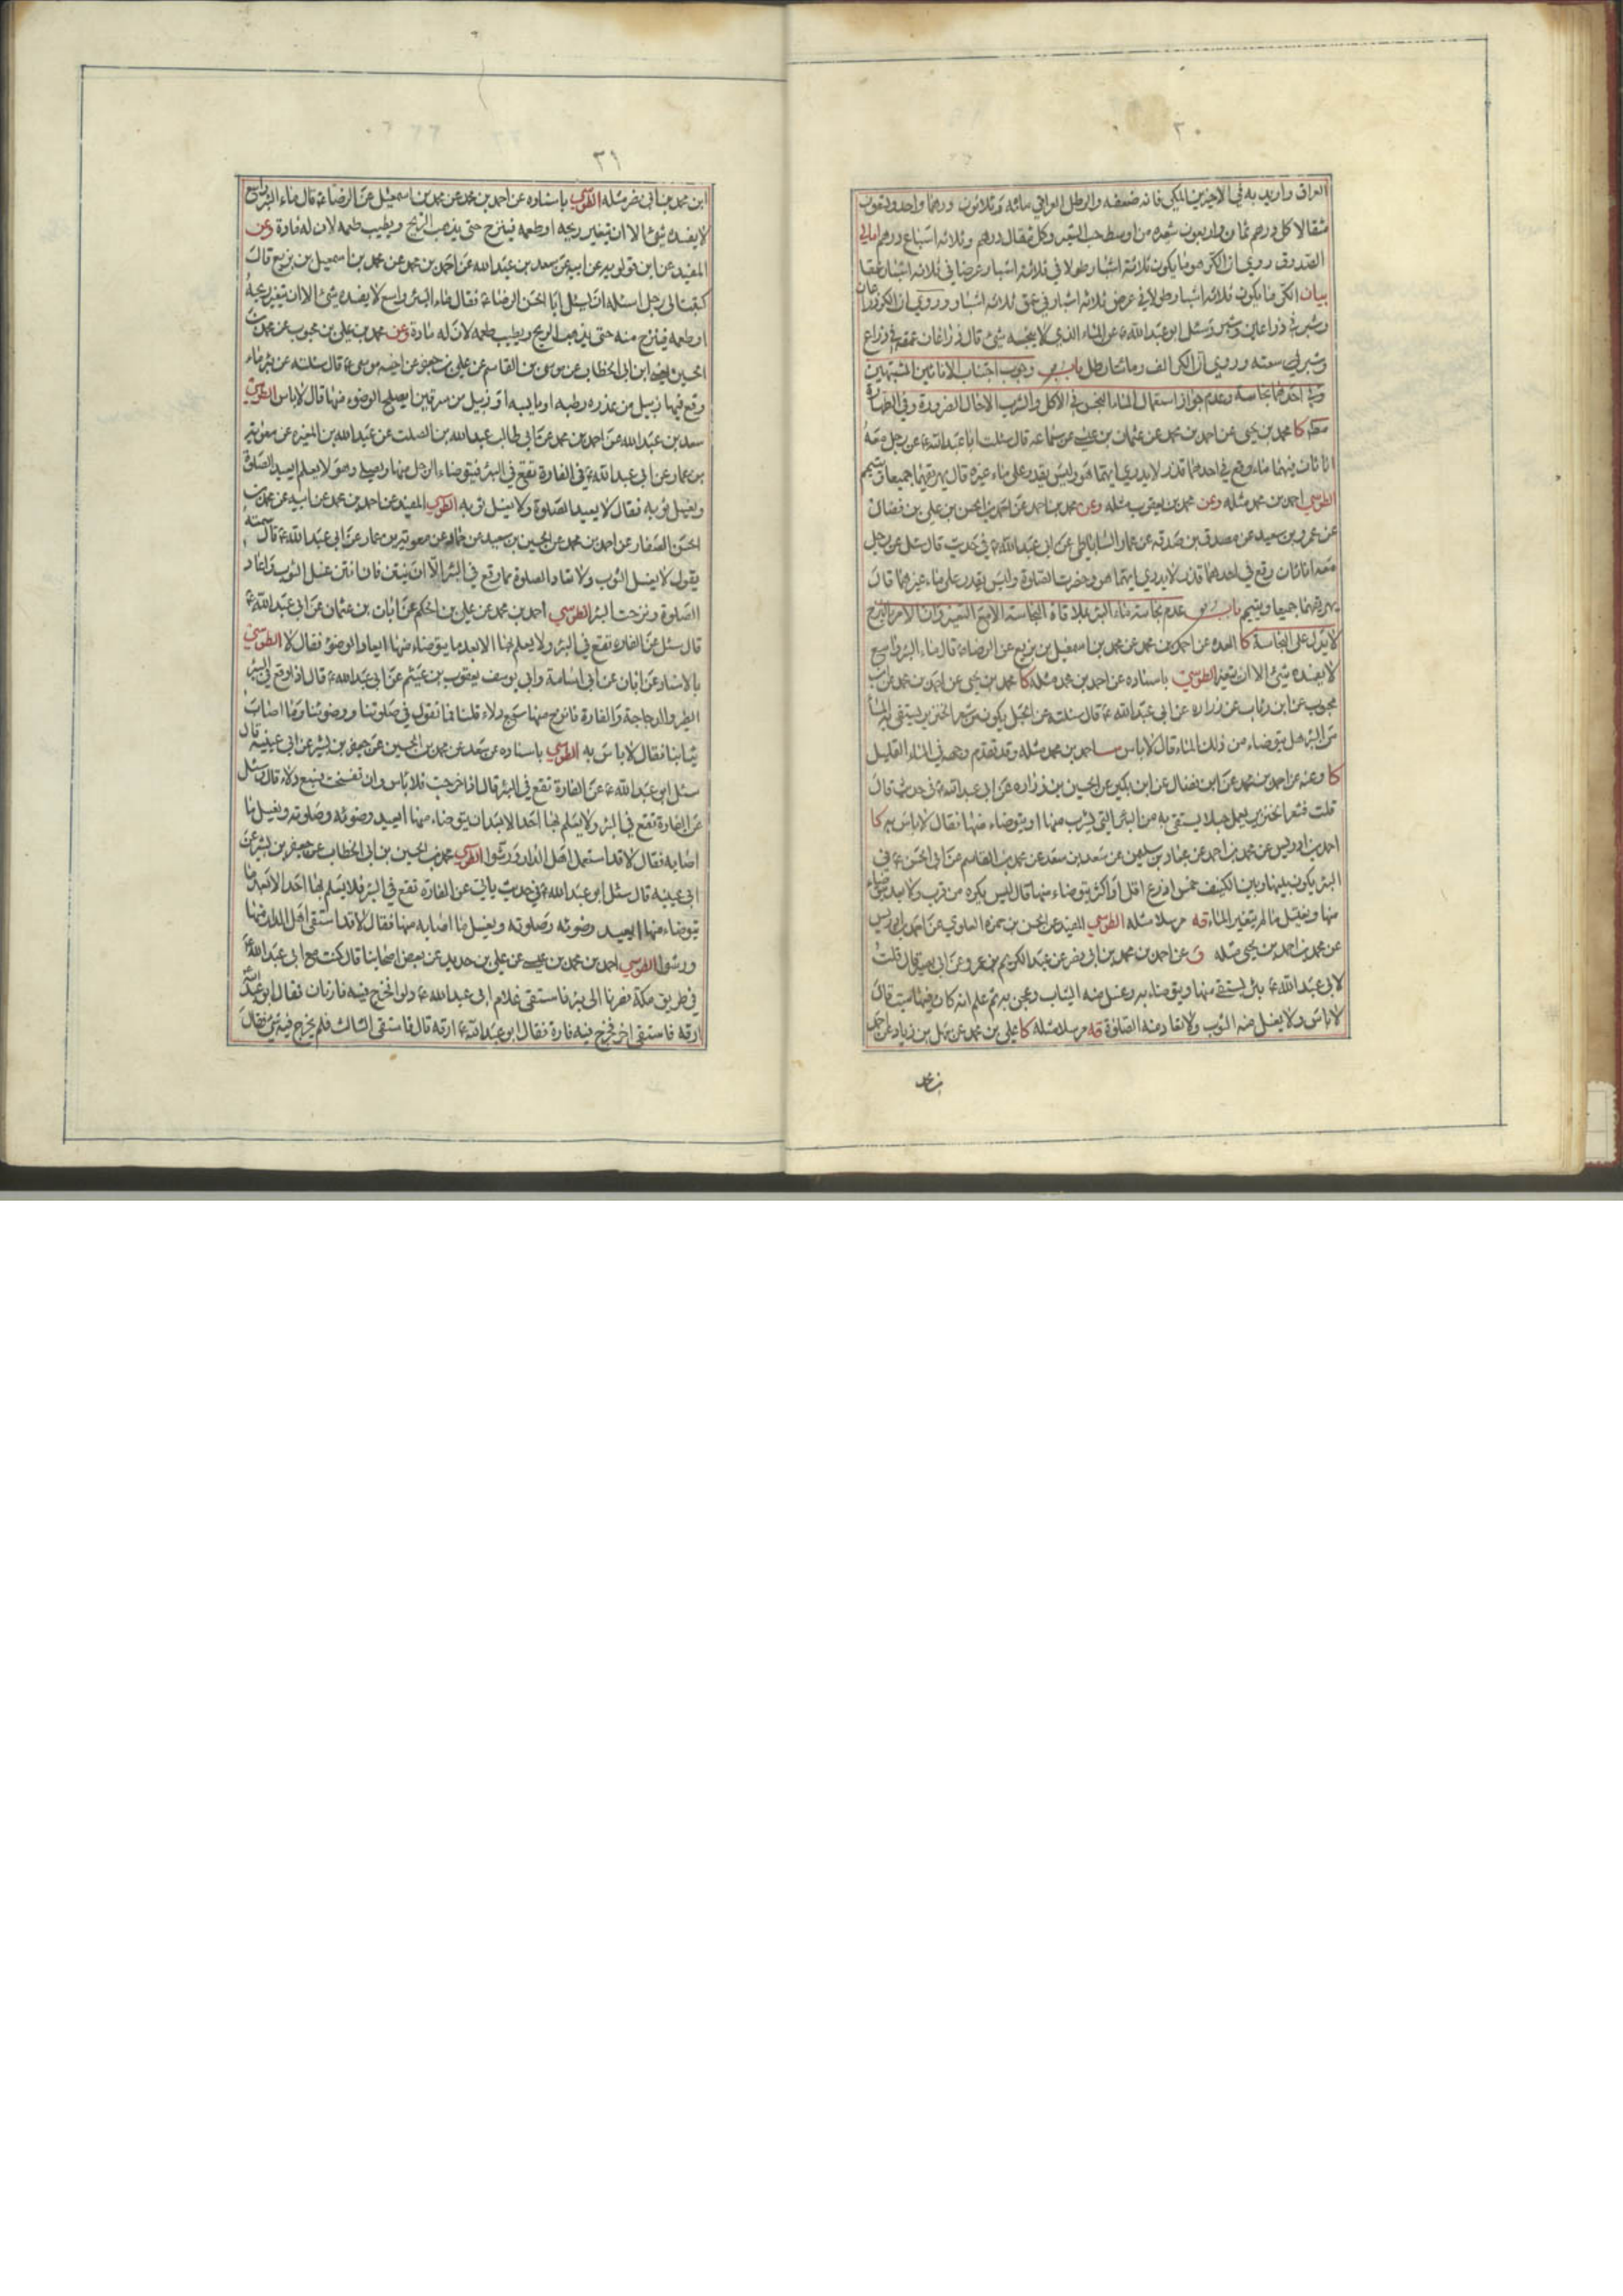 ٣٠
العراق واريد به في الاخيرين المكي فانه ضعفه والرطل العراقي مائة وثلاثون درهما واحد وتسعون
مثقالا كل درهم ثمان واربعون شعيره من اوسط حب الشعير وكل مثقال درهم وثلاثة اسباع درهم امالي
الصدوق روي ان الكر هو ما يكون ثلاثة اشبار طولا في ثلاثة اشبار عرضا في ثلاثة اشبار عمقا
بيان الكر ما يكون ثلاثه اشبار طولا في عرض ثلاثه اشبار في عمق ثلاثه اشبار وروي ان الكر ذراعان
وشبر في ذراعين وشبر وسئل ابو عبد الله ع عن الماء الذي لا ينجسه شئ قال ذراعان عمقه في ذراع
وشبر سعته وروي ان الكر الف ومائتا رطل باب وجوب اجتناب الاناءين المشتبهين
احدهما نجاسة وعدم جواز استعمال الماء النجس في الاكل والشرب الا حال الضرورة وفي الطهارة
مطلقا كا محمد بن يحيى عن احمد بن محمد عن عثمان بن عيسى عن سماعه قال سئلت ابا عبد الله ع عن رجل معه
اناءان فيهما ماء وقع في احدهما قذر لا يدري ايهما هو وليس يقدر على ماء غيره قال يهريقهما جميعا ويتيمم
الطوسي احمد بن محمد مثله وعن محمد بن يعقوب مثله وعن محمد بن احمد عن احمد بن الحسن بن علي بن فضال
عن عمرو بن سعيد عن مصدق بن صدقه عن عمار الساباطي عن ابي عبد الله ع في حديث قال سئل عن رجل
معه اناءان وقع في احدهما قذر لا يدري ايهما هو وحضرت الصلوة وليس يقدر على ماء غيرهما قال
يهريقهما جميعا ويتيمم باب عدم نجاسة ماء البئر بملاقاة النجاسة الا مع التغير وان الامر بالنزح
لا يدل على النجاسة كا العده عن احمد بن محمد عن محمد بن اسمعيل بن بزيع عن الرضا ع قال ماء البئر واسع
لا يفسده شئ الا ان يتغير الطوسي باسناده عن احمد بن محمد مثله كا محمد بن يحيى عن احمد بن محمد عن ابن
محبوب عن ابن رئاب عن زراره عن ابي عبد الله ع قال سئلته عن الحبل يكون من شعر الخنزير يستقي به الماء
من البئر هل يتوضاء من ذلك الماء قال لا باس احمد بن محمد مثله وقد تقدم وجهه في الماء القليل
كا وعنه عن احمد بن محمد عن ابن فضال عن ابن بكير عن الحسين بن زراره عن ابي عبد الله ع في حديث قال
قلت فشعر الخنزير يعمل حبلا يستقي به من البئر التي يشرب منها او يتوضاء منها فقال لا باس به كا
احمد بن ادريس عن محمد بن احمد عن عباد بن سليمن عن سعد بن سعد عن محمد بن القاسم عن ابي الحسن ع في
البئر يكون بينها وبين الكنيف خمس اذرع اقل او اكثر يتوضاء منها قال ليس يكره من قرب ولا بعد يتوضاء
منها ويغتسل ما لم يتغير الماء قه مرسلا مثله الطوسي المفيد عن الحسن بن حمزه العلوي عن احمد بن ادريس
عن محمد بن احمد بن يحيى مثله ق عن احمد بن محمد بن ابي نصر عن عبد الكريم بن عمرو عن ابي بصير قال قلت
لابي عبد الله ع بئر يستقى منها ويتوضاء به وغسل منه الثياب وعجن به ثم علم انه كان فيها ميت قال
لا باس ولا يغسل منه الثوب ولا تعاد منه الصلوة قه مرسلا مثله كا علي بن محمد عن سهل بن زياد عن احمد
بن محمد
٣١
ابن محمد بن ابي نصر مثله الطوسي باسناده عن احمد بن محمد عن محمد بن اسمعيل عن الرضا ع قال ماء البئر واسع
لا يفسده شئ الا ان يتغير ريحه او طعمه فينزح حتى يذهب الريح ويطيب طعمه لان له مادة وعن
المفيد عن ابن قولويه عن ابيه عن سعد بن عبد الله عن احمد بن محمد عن محمد بن اسمعيل بن بزيع قال
كتبت الى رجل اسئله ان يسئل ابا الحسن الرضا ع فقال ماء البئر واسع لا يفسده شئ الا ان يتغير ريحه
او طعمه فينزح منه حتى يذهب الريح ويطيب طعمه لان له مادة وعن محمد بن علي بن محبوب عن محمد بن
الحسين ابن ابي الخطاب عن موسى بن القاسم عن علي بن جعفر عن اخيه موسى ع قال سئلته عن بئر ماء
وقع فيها زبيل من عذره رطبه او يابسه او زبيل من سرقين ايصلح الوضوء منها قال لا باس الطوسي
سعد بن عبد الله عن احمد بن محمد عن ابي طالب عبد الله بن الصلت عن عبد الله بن المغيره عن معويه
بن عمار عن ابي عبد الله ع في الفارة تقع في البئر فيتوضاء الرجل منها ويصلي وهو لا يعلم ايعيد الصلوة
ويغسل ثوبه فقال لا يعيد الصلوة ولا يغسل ثوبه الطوسي المفيد عن احمد بن محمد عن ابيه عن محمد بن
الحسن الصفار عن احمد بن محمد عن الحسين بن سعيد عن حماد عن معويه بن عمار عن ابي عبد الله ع قال سمعته
يقول لا يغسل الثوب ولا تعاد الصلوة مما وقع في البئر الا ان ينتن فان انتن غسل الثوب واعاد
الصلوة ونزحت البئر الطوسي احمد بن محمد عن علي بن الحكم عن ابان بن عثمان عن ابي عبد الله ع
قال سئل عن الفاره تقع في البئر ولا يعلم بها الا بعد ما يتوضاء منها ايعاد الوضوء فقال لا الطوسي
بالاسناد عن ابان عن ابي اسامة وابي يوسف يعقوب بن عيثم عن ابي عبد الله ع قال اذا وقع في البئر
الطير والدجاجة والفارة فانزح منها سبع دلاء قلنا فما تقول في صلوتنا ووضوئنا وما اصاب
ثيابنا فقال لا باس به الطوسي باسناده عن سعد عن محمد بن الحسين عن جعفر بن بشير عن ابي عيينه قال
سئل ابو عبد الله ع عن الفارة تقع في البئر قال اذا خرجت فلا باس وان تفسخت فسبع دلاء قال وسئل
عن الفارة تقع في البئر ولا يعلم بها احد الا بعد ان يتوضاء منها ايعيد وضوئه وصلوته ويغسل ما
اصابه فقال لا قد استعمل اهل الدار ورشوا الطوسي محمد بن الحسين بن ابي الخطاب عن جعفر بن بشير عن
ابي عيينه قال سئل ابو عبد الله ع في حديث ياتي عن الفارة تقع في البئر فلا يعلم بها احد الا بعد ما
يتوضاء منها ايعيد وضوئه وصلوته ويغسل ما اصابه منها فقال لا قد استقى اهل الدار منها
ورشوا الطوسي احمد بن محمد بن عيسى عن علي بن حديد عن بعض اصحابنا قال كنت مع ابي عبد الله ع
في طريق مكة فصرنا الى بئر فاستقى غلام ابي عبد الله ع دلوا فخرج فيه فارتان فقال ابو عبد الله
ارقه فاستقى اخر فخرج فيه فارة فقال ابو عبد الله ع ارقه قال فاستقى الثالث فلم يخرج فيه شئ فقال